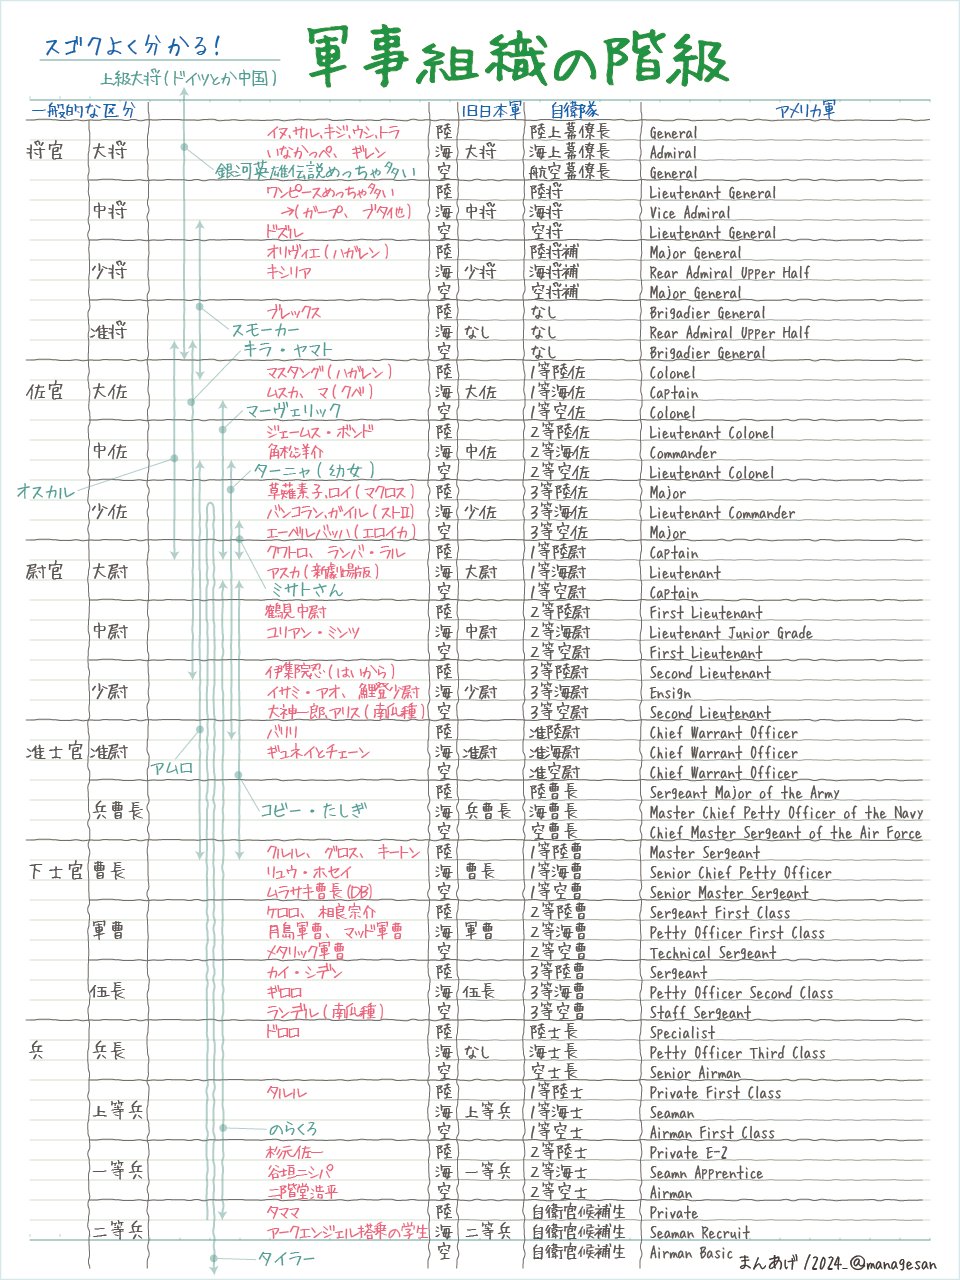 スゴクよく分かる!
軍事組織の階級
上級大将(ドイツとか中国)
一般的な区分 旧日本軍 自衛隊 アメリカ軍
イヌ,サル,キジ,ウシ,トラ 陸 陸上幕僚長 General
将官 大将 いなかっぺ、ギレン 海 大将 海上幕僚長 Admiral
銀河英雄伝説めっちゃ多い 空 航空幕僚長 General
ワンピースめっちゃ多い 陸 陸将 Lieutenant General
中将 →(ガープ、ブタ他) 海 中将 海将 Vice Admiral
ドズル 空 空将 Lieutenant General
オリヴィエ(ハガレン) 陸 陸将補 Major General
少将 キシリア 海 少将 海将補 Rear Admiral Upper Half
空 空将補 Major General
ブレックス 陸 なし Brigadier General
准将 スモーカー 海 なし なし Rear Admiral Upper Half
キラ・ヤマト 空 なし Brigadier General
マスタング(ハガレン) 陸 1等陸佐 Colonel
佐官 大佐 ムスカ、マ(クベ) 海 大佐 1等海佐 Captain
マーヴェリック 空 1等空佐 Colonel
ジェームス・ボンド 陸 2等陸佐 Lieutenant Colonel
中佐 角松洋介 海 中佐 2等海佐 Commander
ターニャ(幼女) 空 2等空佐 Lieutenant Colonel
オスカル 草薙素子,ロイ(マクロス) 陸 3等陸佐 Major
少佐 バンコラン,ガイル(ストII) 海 少佐 3等海佐 Lieutenant Commander
エーベルバッハ(エロイカ) 空 3等空佐 Major
クワトロ、ランバ・ラル 陸 1等陸尉 Captain
尉官 大尉 アスカ(新劇場版) 海 大尉 1等海尉 Lieutenant
ミサトさん 空 1等空尉 Captain
鶴見中尉 陸 2等陸尉 First Lieutenant
中尉 ユリアン・ミンツ 海 中尉 2等海尉 Lieutenant Junior Grade
空 2等空尉 First Lieutenant
伊集院忍(はいから) 陸 3等陸尉 Second Lieutenant
少尉 イサミ・アオ、鯉登少尉 海 少尉 3等海尉 Ensign
大神一郎,アリス(南瓜種) 空 3等空尉 Second Lieutenant
パリリ 陸 准陸尉 Chief Warrant Officer
准士官 准尉 ギュネイとチェーン 海 准尉 准海尉 Chief Warrant Officer
アムロ 空 准空尉 Chief Warrant Officer
陸 陸曹長 Sergeant Major of the Army
兵曹長 コビー・たしぎ 海 兵曹長 海曹長 Master Chief Petty Officer of the Navy
空 空曹長 Chief Master Sergeant of the Air Force
クルル、グロス、キートン 陸 1等陸曹 Master Sergeant
下士官 曹長 リュウ・ホセイ 海 曹長 1等海曹 Senior Chief Petty Officer
ムラサキ曹長(DB) 空 1等空曹 Senior Master Sergeant
ケロロ、相良宗介 陸 2等陸曹 Sergeant First Class
軍曹 月島軍曹、マッド軍曹 海 軍曹 2等海曹 Petty Officer First Class
メタリック軍曹 空 2等空曹 Technical Sergeant
カイ・シデン 陸 3等陸曹 Sergeant
伍長 ギロロ 海 伍長 3等海曹 Petty Officer Second Class
ランデル(南瓜種) 空 3等空曹 Staff Sergeant
ドロロ 陸 陸士長 Specialist
兵 兵長 海 なし 海士長 Petty Officer Third Class
空 空士長 Senior Airman
タルル 陸 1等陸士 Private First Class
上等兵 海 上等兵 1等海士 Seaman
のらくろ 空 1等空士 Airman First Class
杉元佐一 陸 2等陸士 Private E-2
一等兵 谷垣ニシパ 海 一等兵 2等海士 Seamn Apprentice
二階堂浩平 空 2等空士 Airman
タママ 陸 自衛官候補生 Private
二等兵 アークエンジェル搭乗の学生 海 二等兵 自衛官候補生 Seaman Recruit
タイラー 空 自衛官候補生 Airman Basic
まんあげ/2024_@managesan